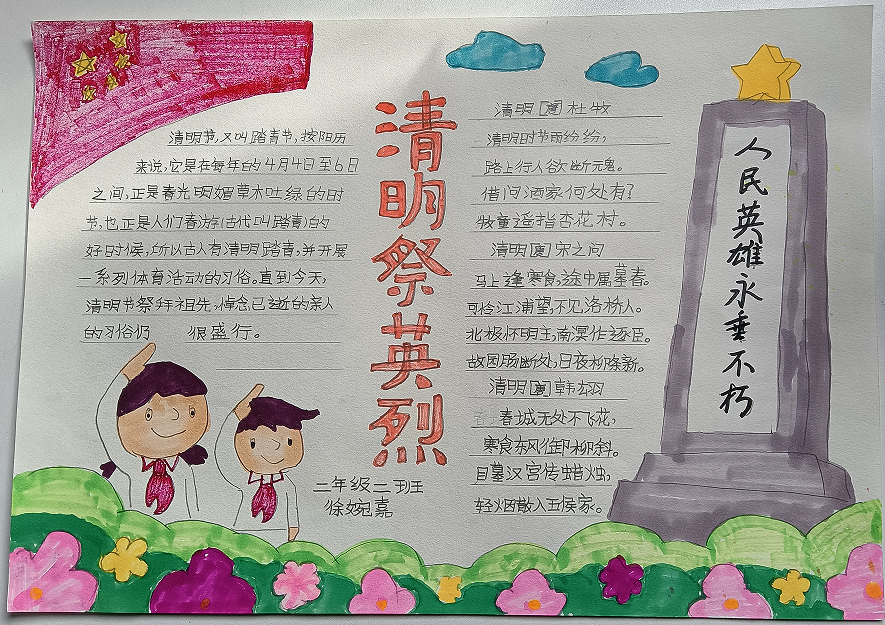 清明节,又叫踏青节,按阳历
来说,它是在每年的4月4日至6日
之间,正是春光明媚草木吐绿的时
节,也正是人们春游(古代叫踏青)的
好时候,所以古人有清明踏青,并开展
一系列体育活动的习俗。直到今天,
清明节祭拜祖先,悼念已逝的亲人
的习俗仍 很盛行。
清明祭英烈
二年级二班
徐婉嘉
清明 杜牧
清明时节雨纷纷,
路上行人欲断魂。
借问酒家何处有?
牧童遥指杏花村。
清明 宋之问
马上逢寒食,途中属暮春。
可怜江浦望,不见洛桥人。
北极怀明主,南溟作逐臣。
故园肠断处,日夜柳条新。
清明 韩翃
春城无处不飞花,
寒食东风御柳斜。
日暮汉宫传蜡烛,
轻烟散入五侯家。
人民英雄永垂不朽